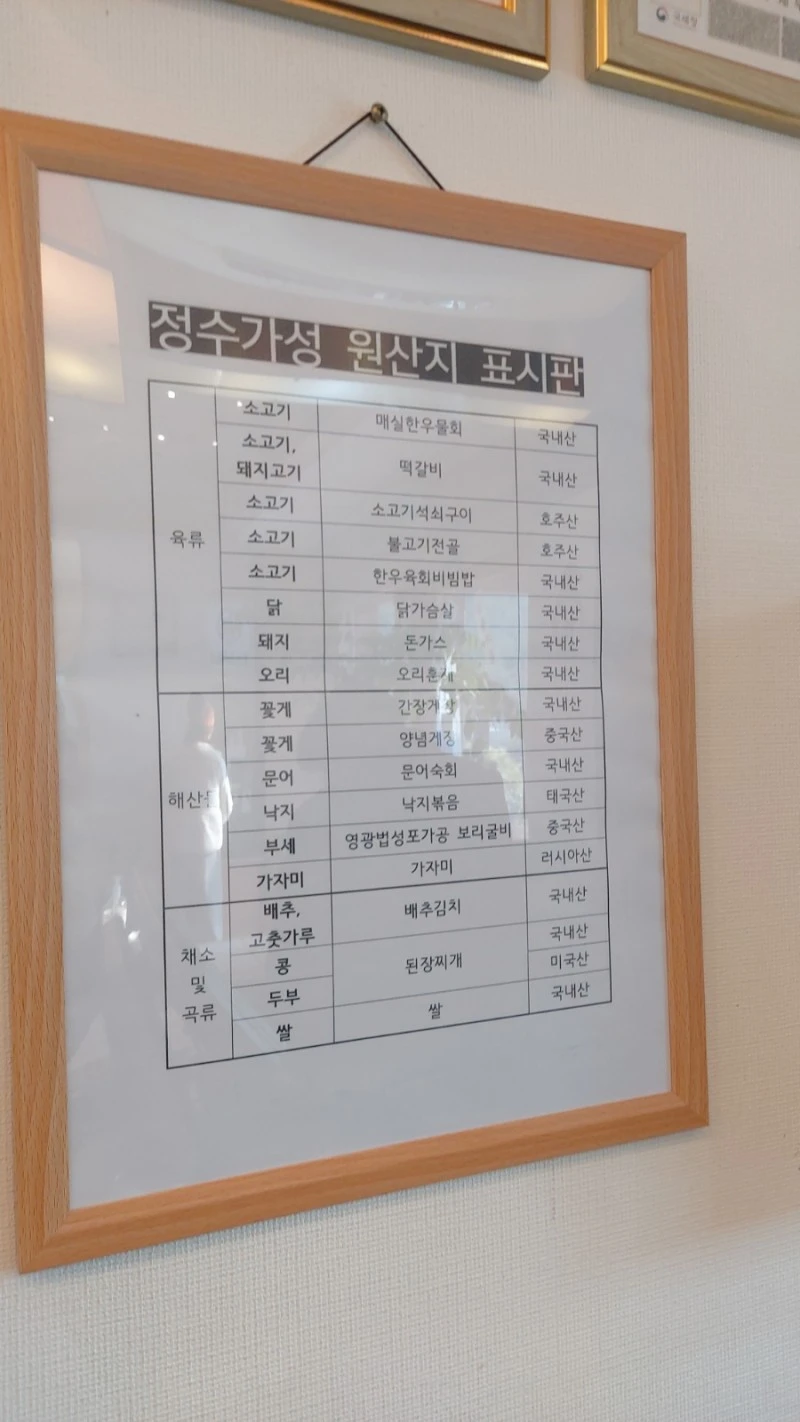 국세청
정수가성 원산지 표시판
육류
소고기 매실한우물회 국내산
소고기,
돼지고기 떡갈비 국내산
소고기 소고기석쇠구이 호주산
소고기 불고기전골 호주산
소고기 한우육회비빔밥 국내산
닭 닭가슴살 국내산
돼지 돈가스 국내산
오리 오리훈제 국내산
해산물
꽃게 간장게장 국내산
꽃게 양념게장 중국산
문어 문어숙회 국내산
낙지 낙지볶음 태국산
부세 영광법성포가공 보리굴비 중국산
가자미 가자미 러시아산
채소
및
곡류
배추,
고춧가루 배추김치 국내산
콩 된장찌개 국내산
두부 미국산
쌀 쌀 국내산